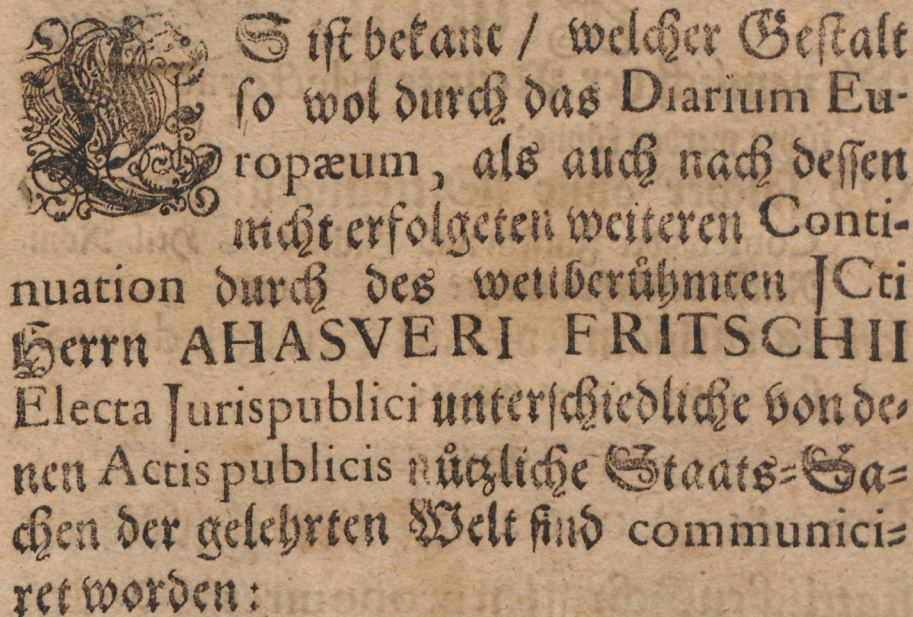 ES ist bekant / welcher Gestalt
so wol durch das Diarium Eu-
ropæum, als auch nach dessen
nicht erfolgeten weiteren Conti-
nuation durch des weitberühmten JCti
Herrn AHASVERI FRITSCHII
Electa Jurispublici unterschiedliche von de-
nen Actis publicis nützliche Staats-Sa-
chen der gelehrten Welt sind communici-
ret worden: